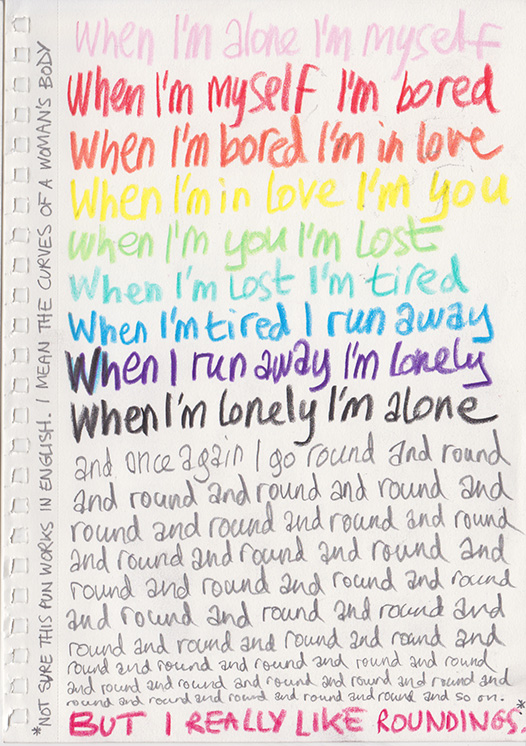 When I'm alone I'm myself
When I'm myself I'm bored
When I'm bored I'm in love
When I'm in love I'm you
When I'm you I'm Lost
When I'm Lost I'm tired
When I'm tired I run away
When I run away I'm lonely
When I'm lonely I'm alone
and once again I go round and round
and round and round and round and
round and round and round and round
and round and round and round and
round and round and round and round
and round and round and round and
round and round and round and round and
round and round and round and round and round
and round and round and round and round and round and
round and round and round and round and round and so on.
BUT I REALLY LIKE ROUNDINGS.*
*NOT SURE THIS PUN WORKS IN ENGLISH. I MEAN THE CURVES OF A WOMAN'S BODY